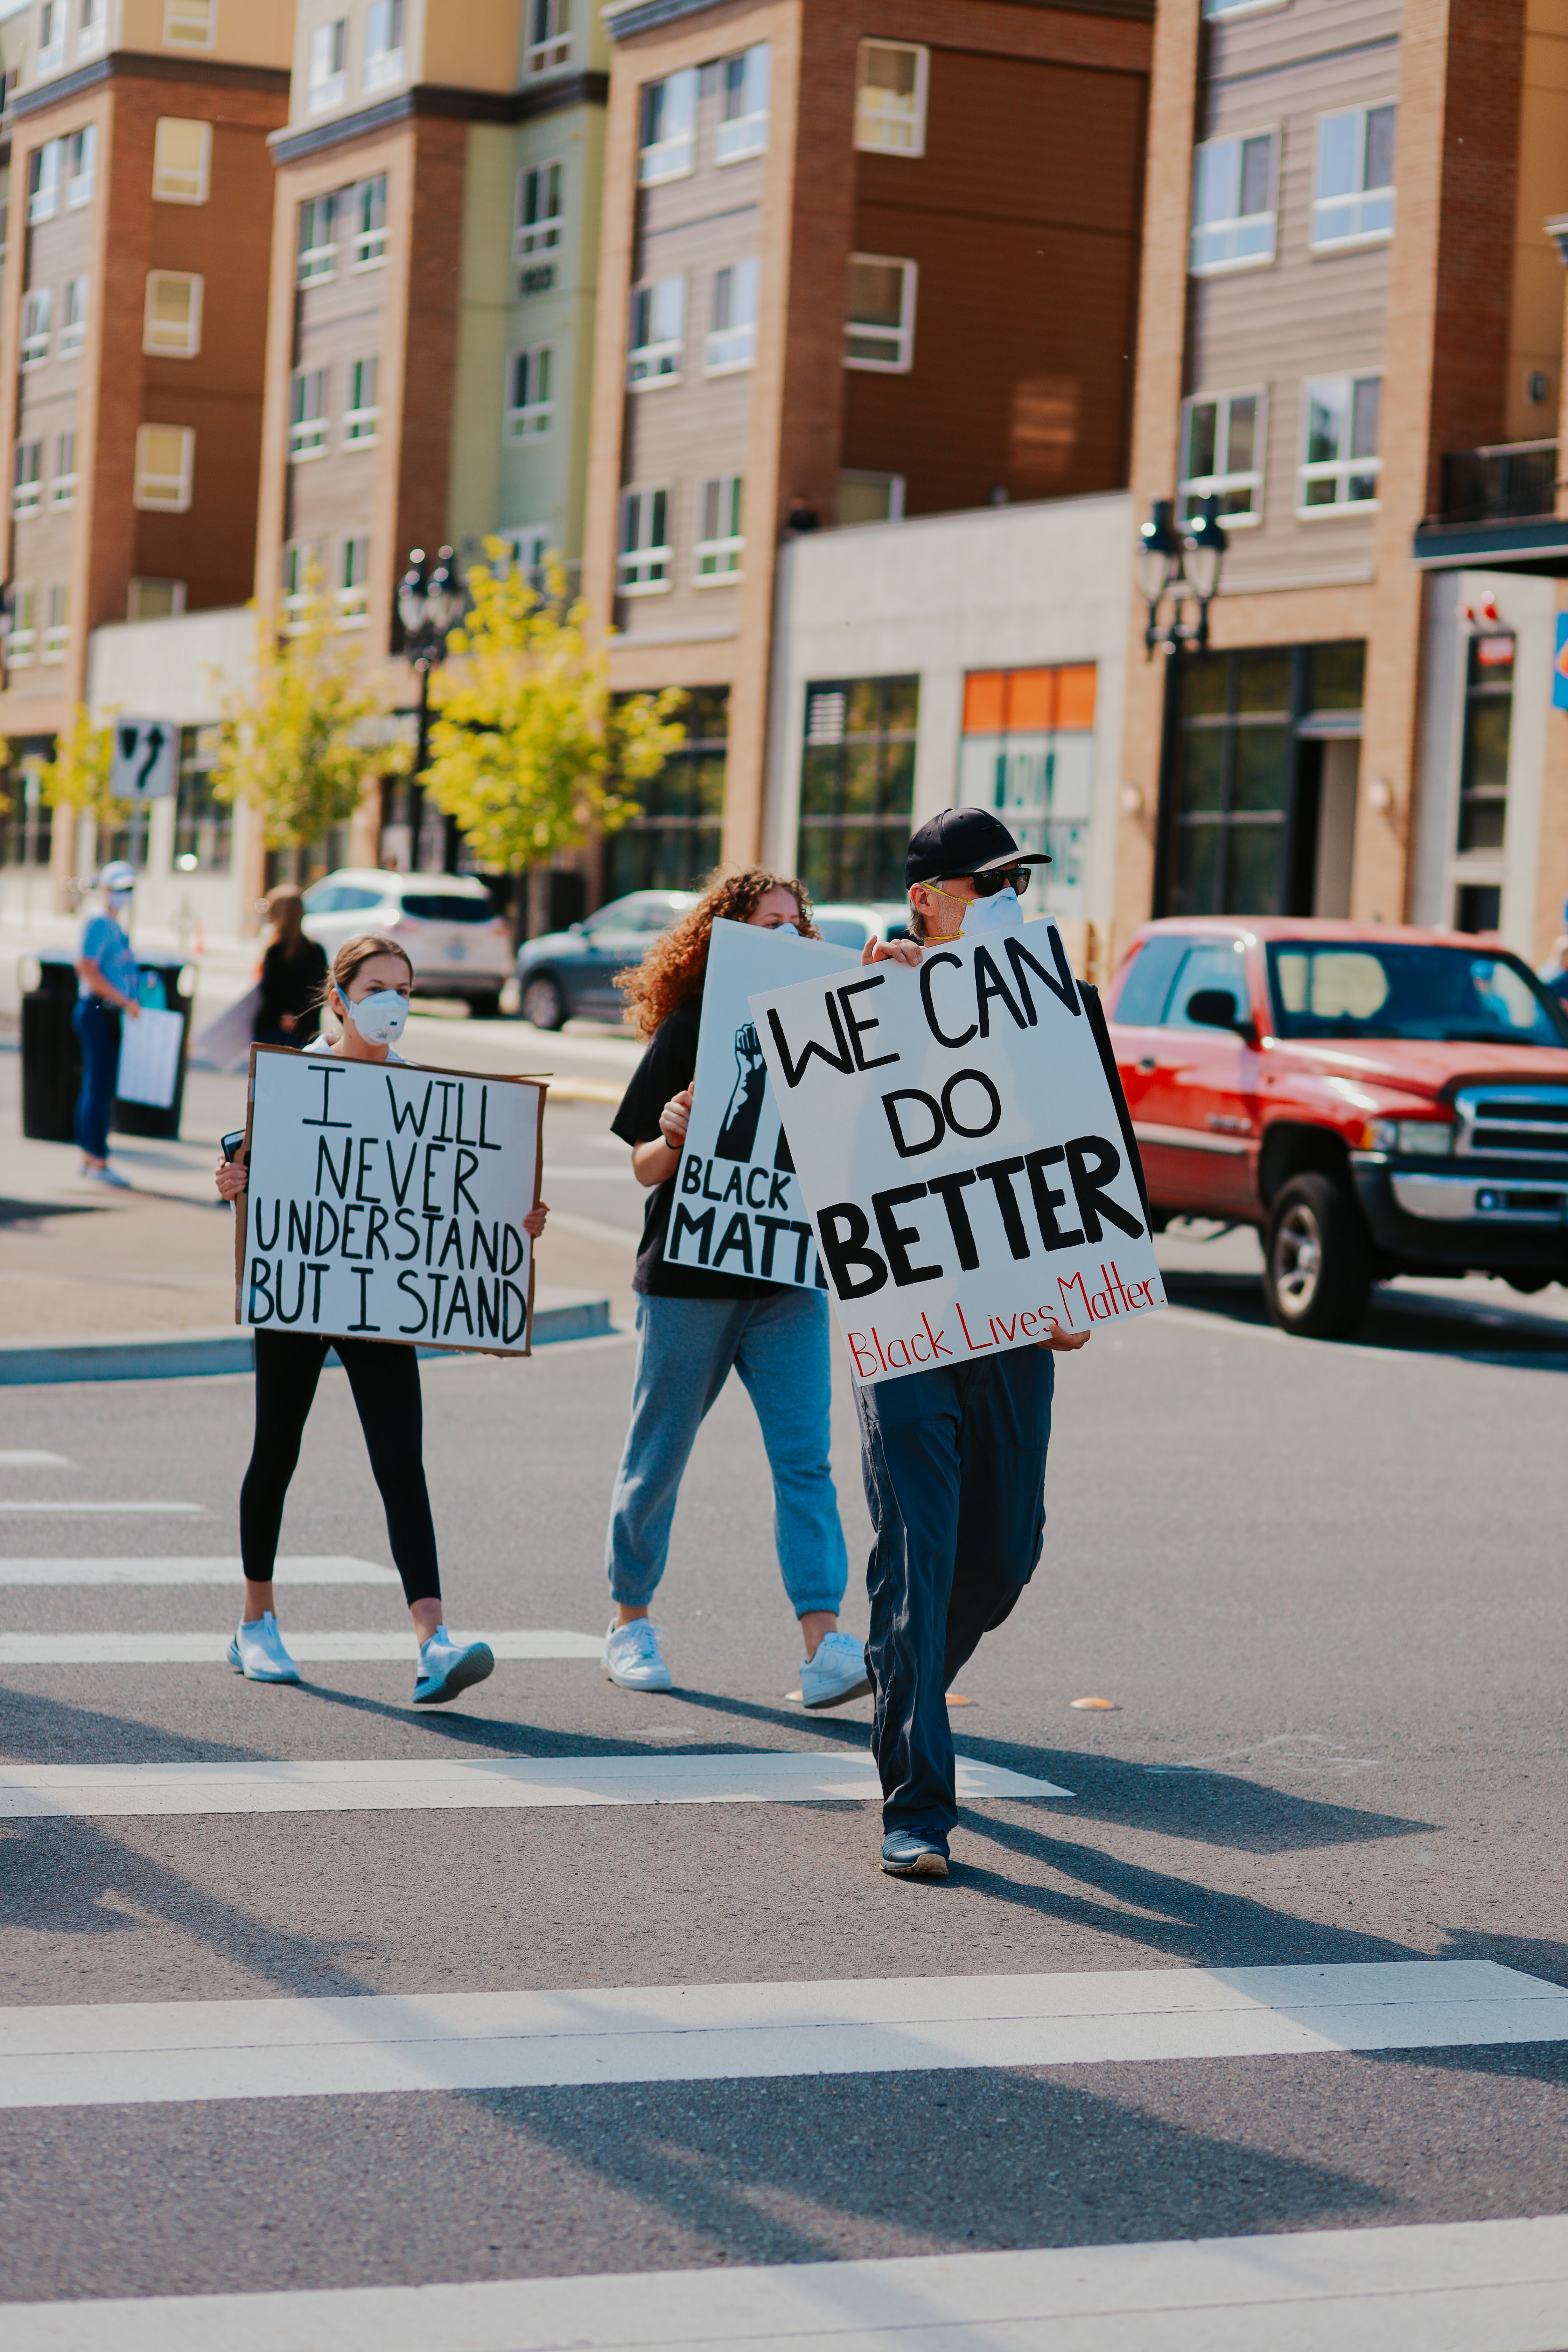 I WILL
NEVER
UNDERSTAND
BUT I STAND
BLACK
MATT
WE CAN
DO
BETTER
Black Lives Matter.